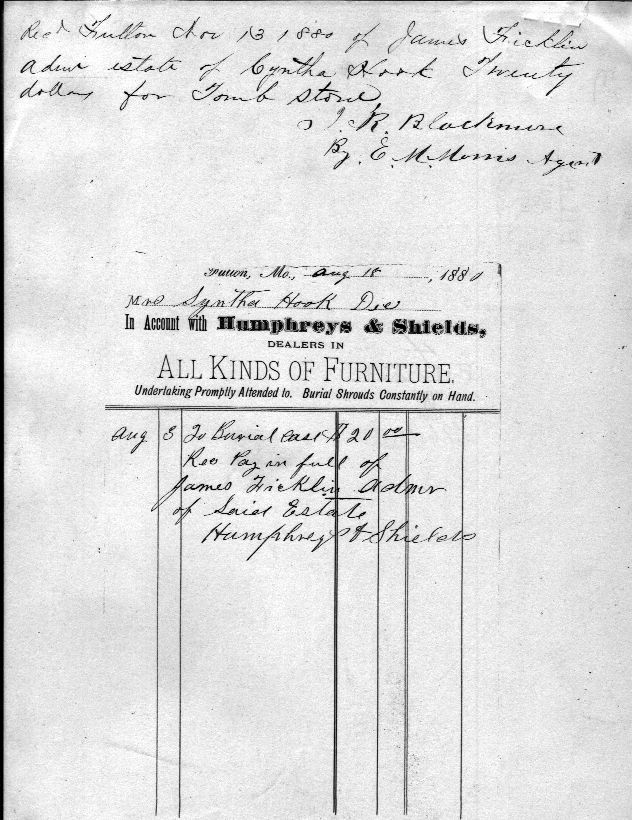 Recd Fulton Nov 13 1880 of James Ficklin
admr estate of Cyntha Hook Twenty
dollars for Tomb stone
J. R. Blackmore
By E. M. Morris Agent
Fulton, Mo., Aug 18, 1880
Mrs Syntha Hook Dec
In Account with Humphreys & Shields,
DEALERS IN
ALL KINDS OF FURNITURE.
Undertaking Promptly Attended to. Burial Shrouds Constantly on Hand.
Aug 3 To Burial case $ 20 00
Rec Pay in full of
James Ficklin Admr
of Said Estate
Humphreys & Shields